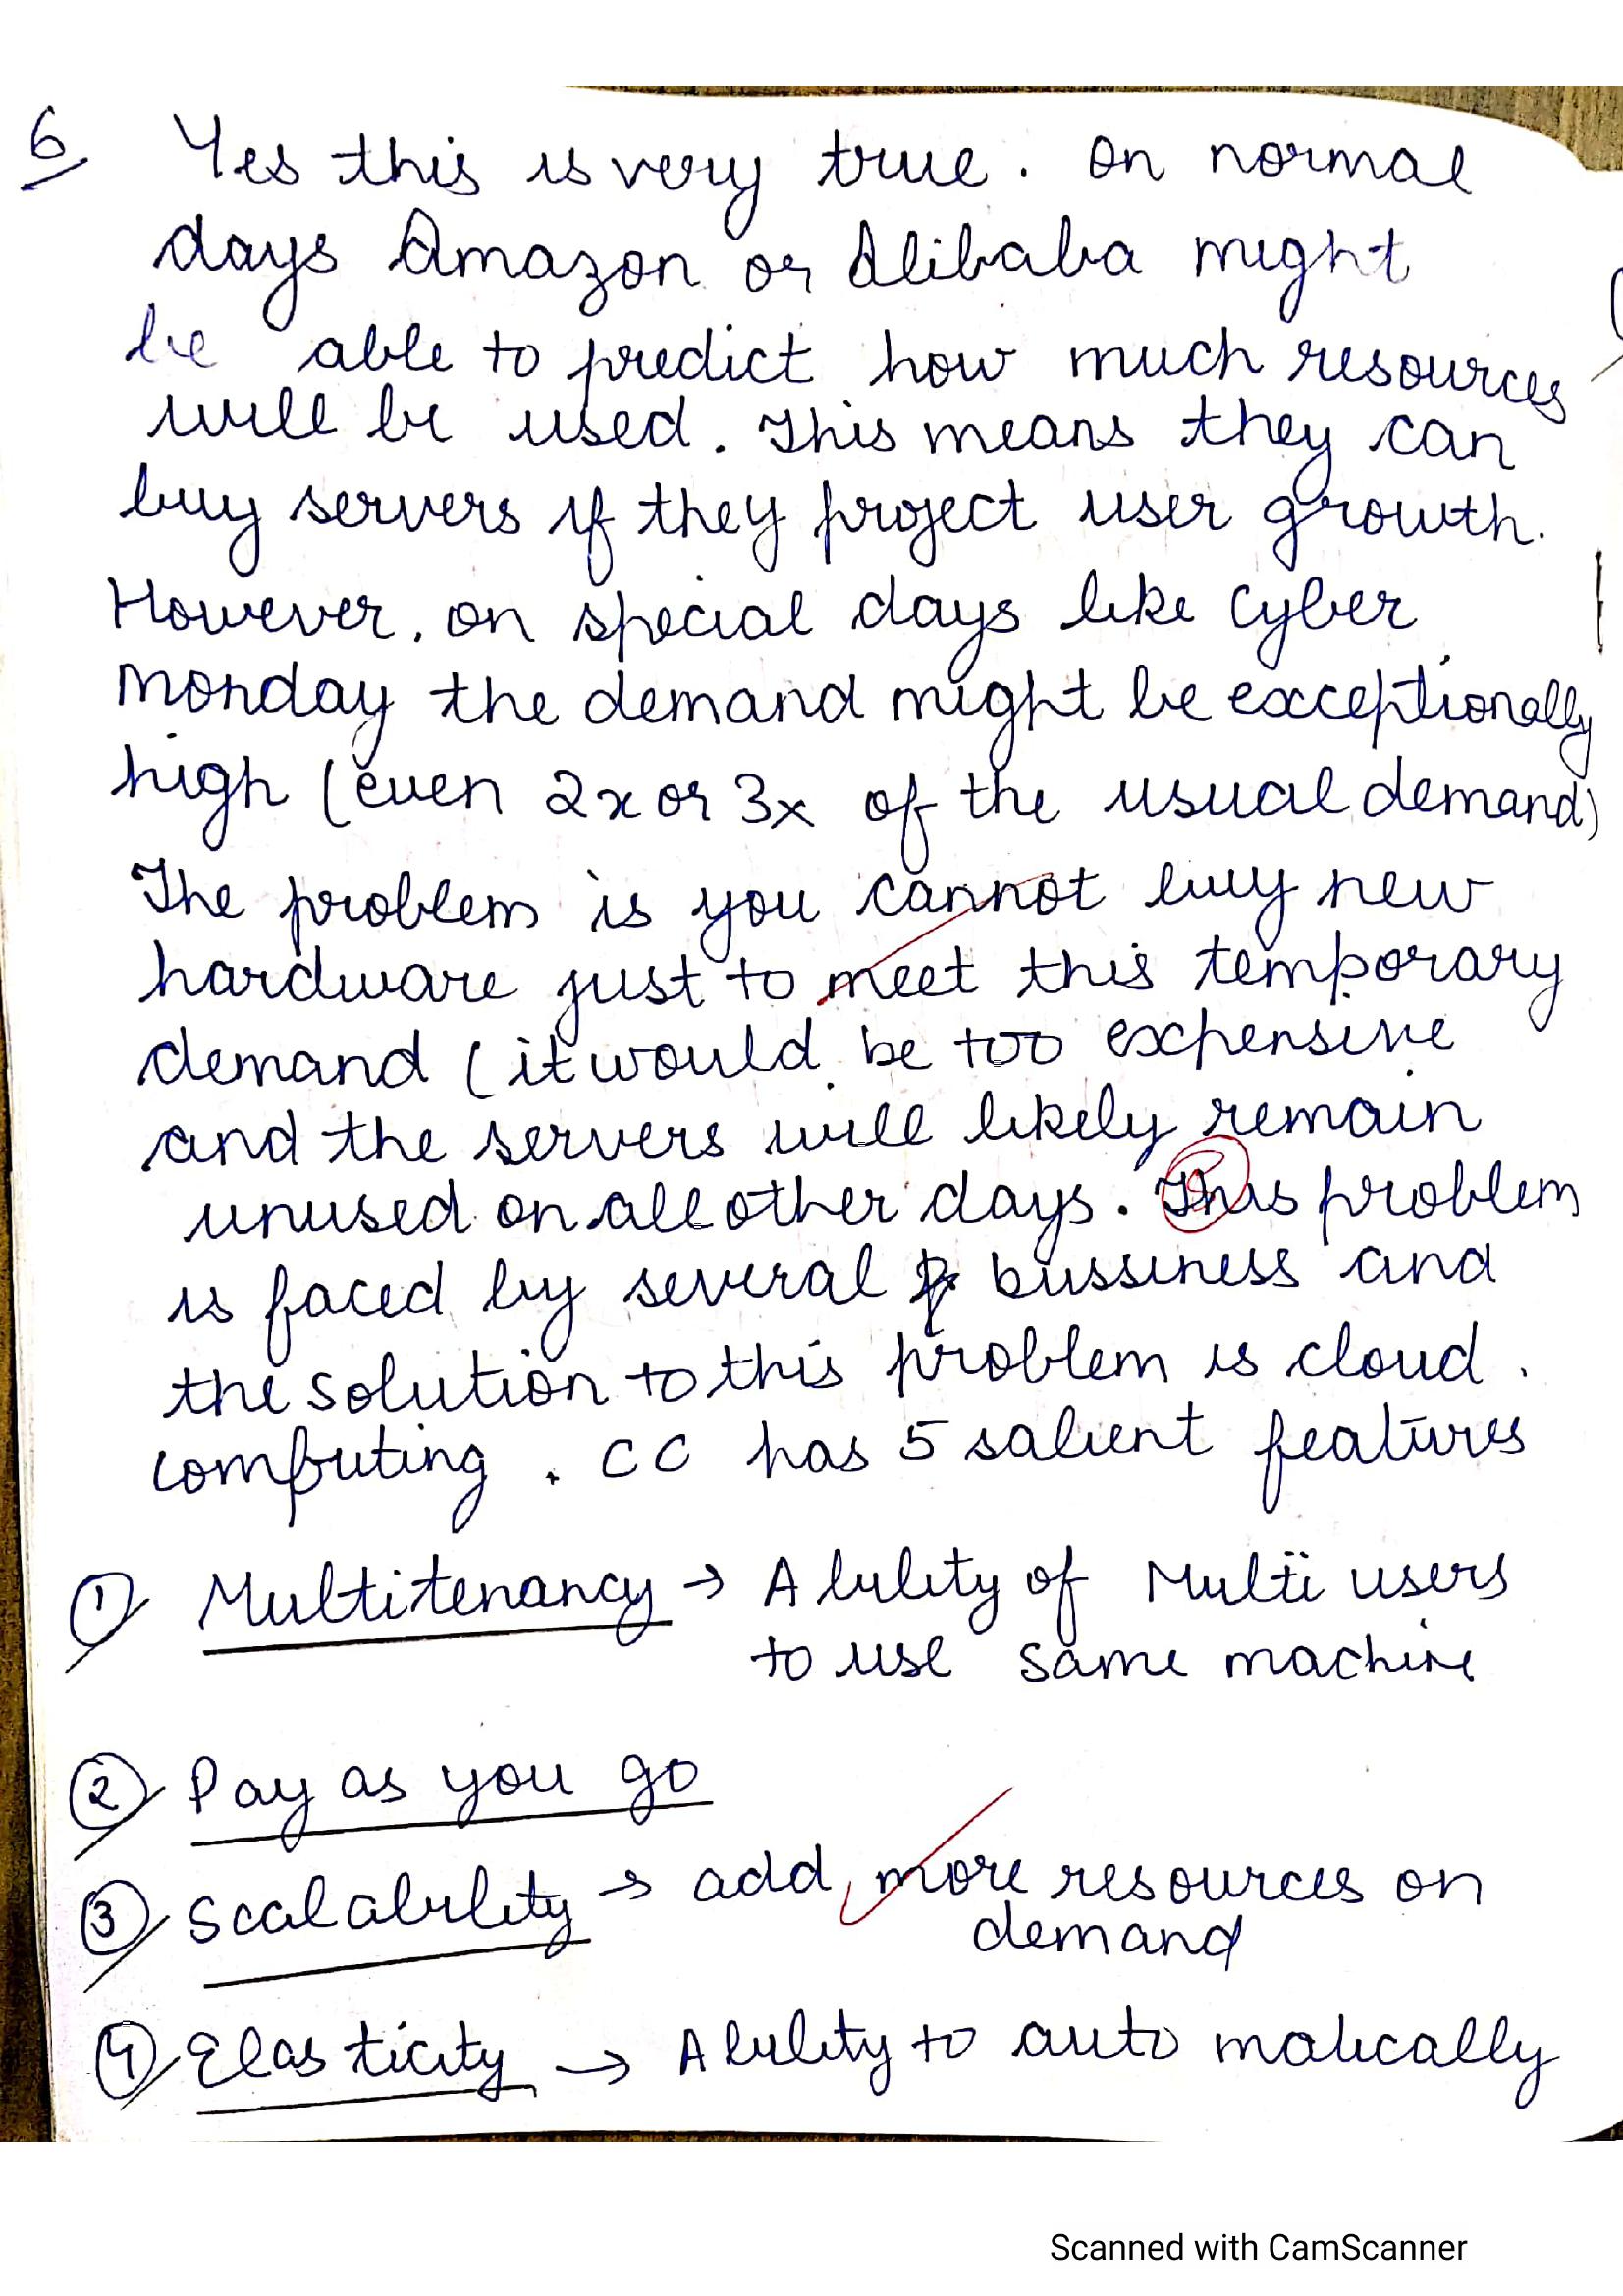 6 Yes this is very true. On normal
days Amazon or Alibaba might
be able to predict how much resources
will be used. This means they can
buy servers if they project user growth.
However, on special days like cyber
monday the demand might be exceptionally
high (even 2x or 3x of the usual demand)
The problem is you cannot buy new
hardware just to meet this temporary
demand (it would be too expensive
and the servers will likely remain
unused on all other days. This problem
is faced by several bussiness and
the solution to this problem is cloud.
computing. CC has 5 salient features
① Multitenancy → Ability of Multi users
to use same machine
② Pay as you go
③ Scalability → add more resources on
demand
④ Elasticity → Ability to auto matically
Scanned with CamScanner